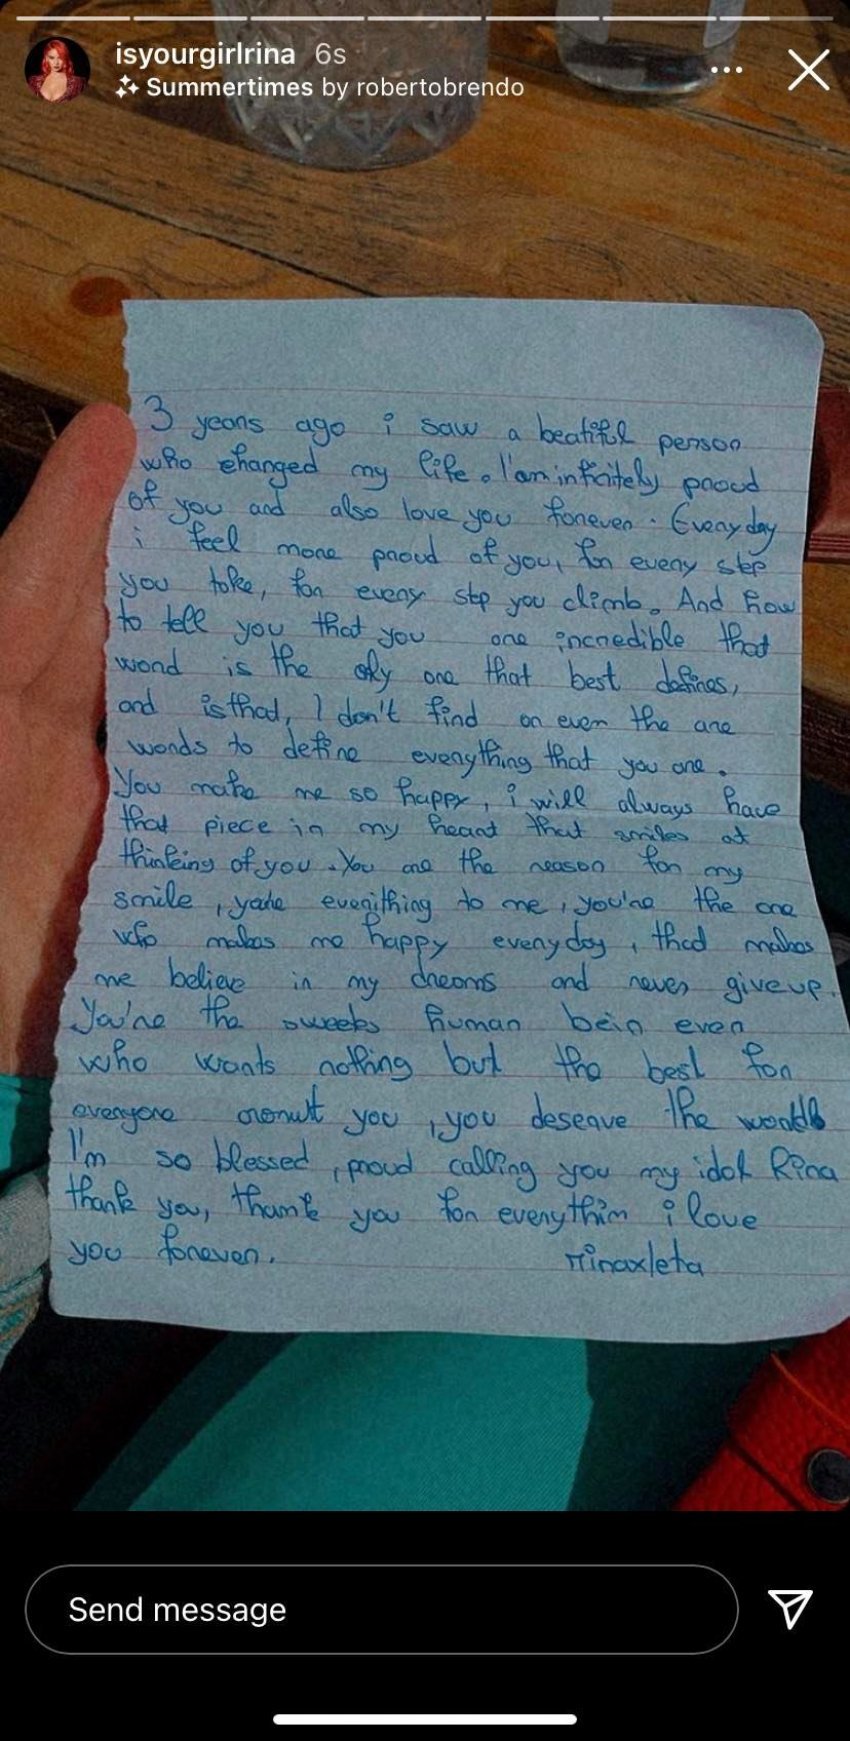 isyourgirlrina 6s
Summertimes by robertobrendo
3 years ago i saw a beatiful person
who changed my life. I'am infinitely proud
of you and also love you forever. Everyday
i feel more proud of you, for every step
you take, for every step you climb. And how
to tell you that you are incredible that
word is the only one that best defines,
and is that, I don't find or even the are
words to define everything that you are.
You make me so happy, i will always have
that piece in my heart that smiles at
thinking of you. You are the reason for my
smile, you're everithing to me, you're the one
who makes me happy everyday, that makes
me believe in my dreams and never give up.
You're the sweets human bein ever
who wants nothing but the best for
everyone you, you deserve the world
I'm so blessed, proud calling you my idol Rina
thank you, thank you for everythim i love
you forever. rinaxleta
Send message